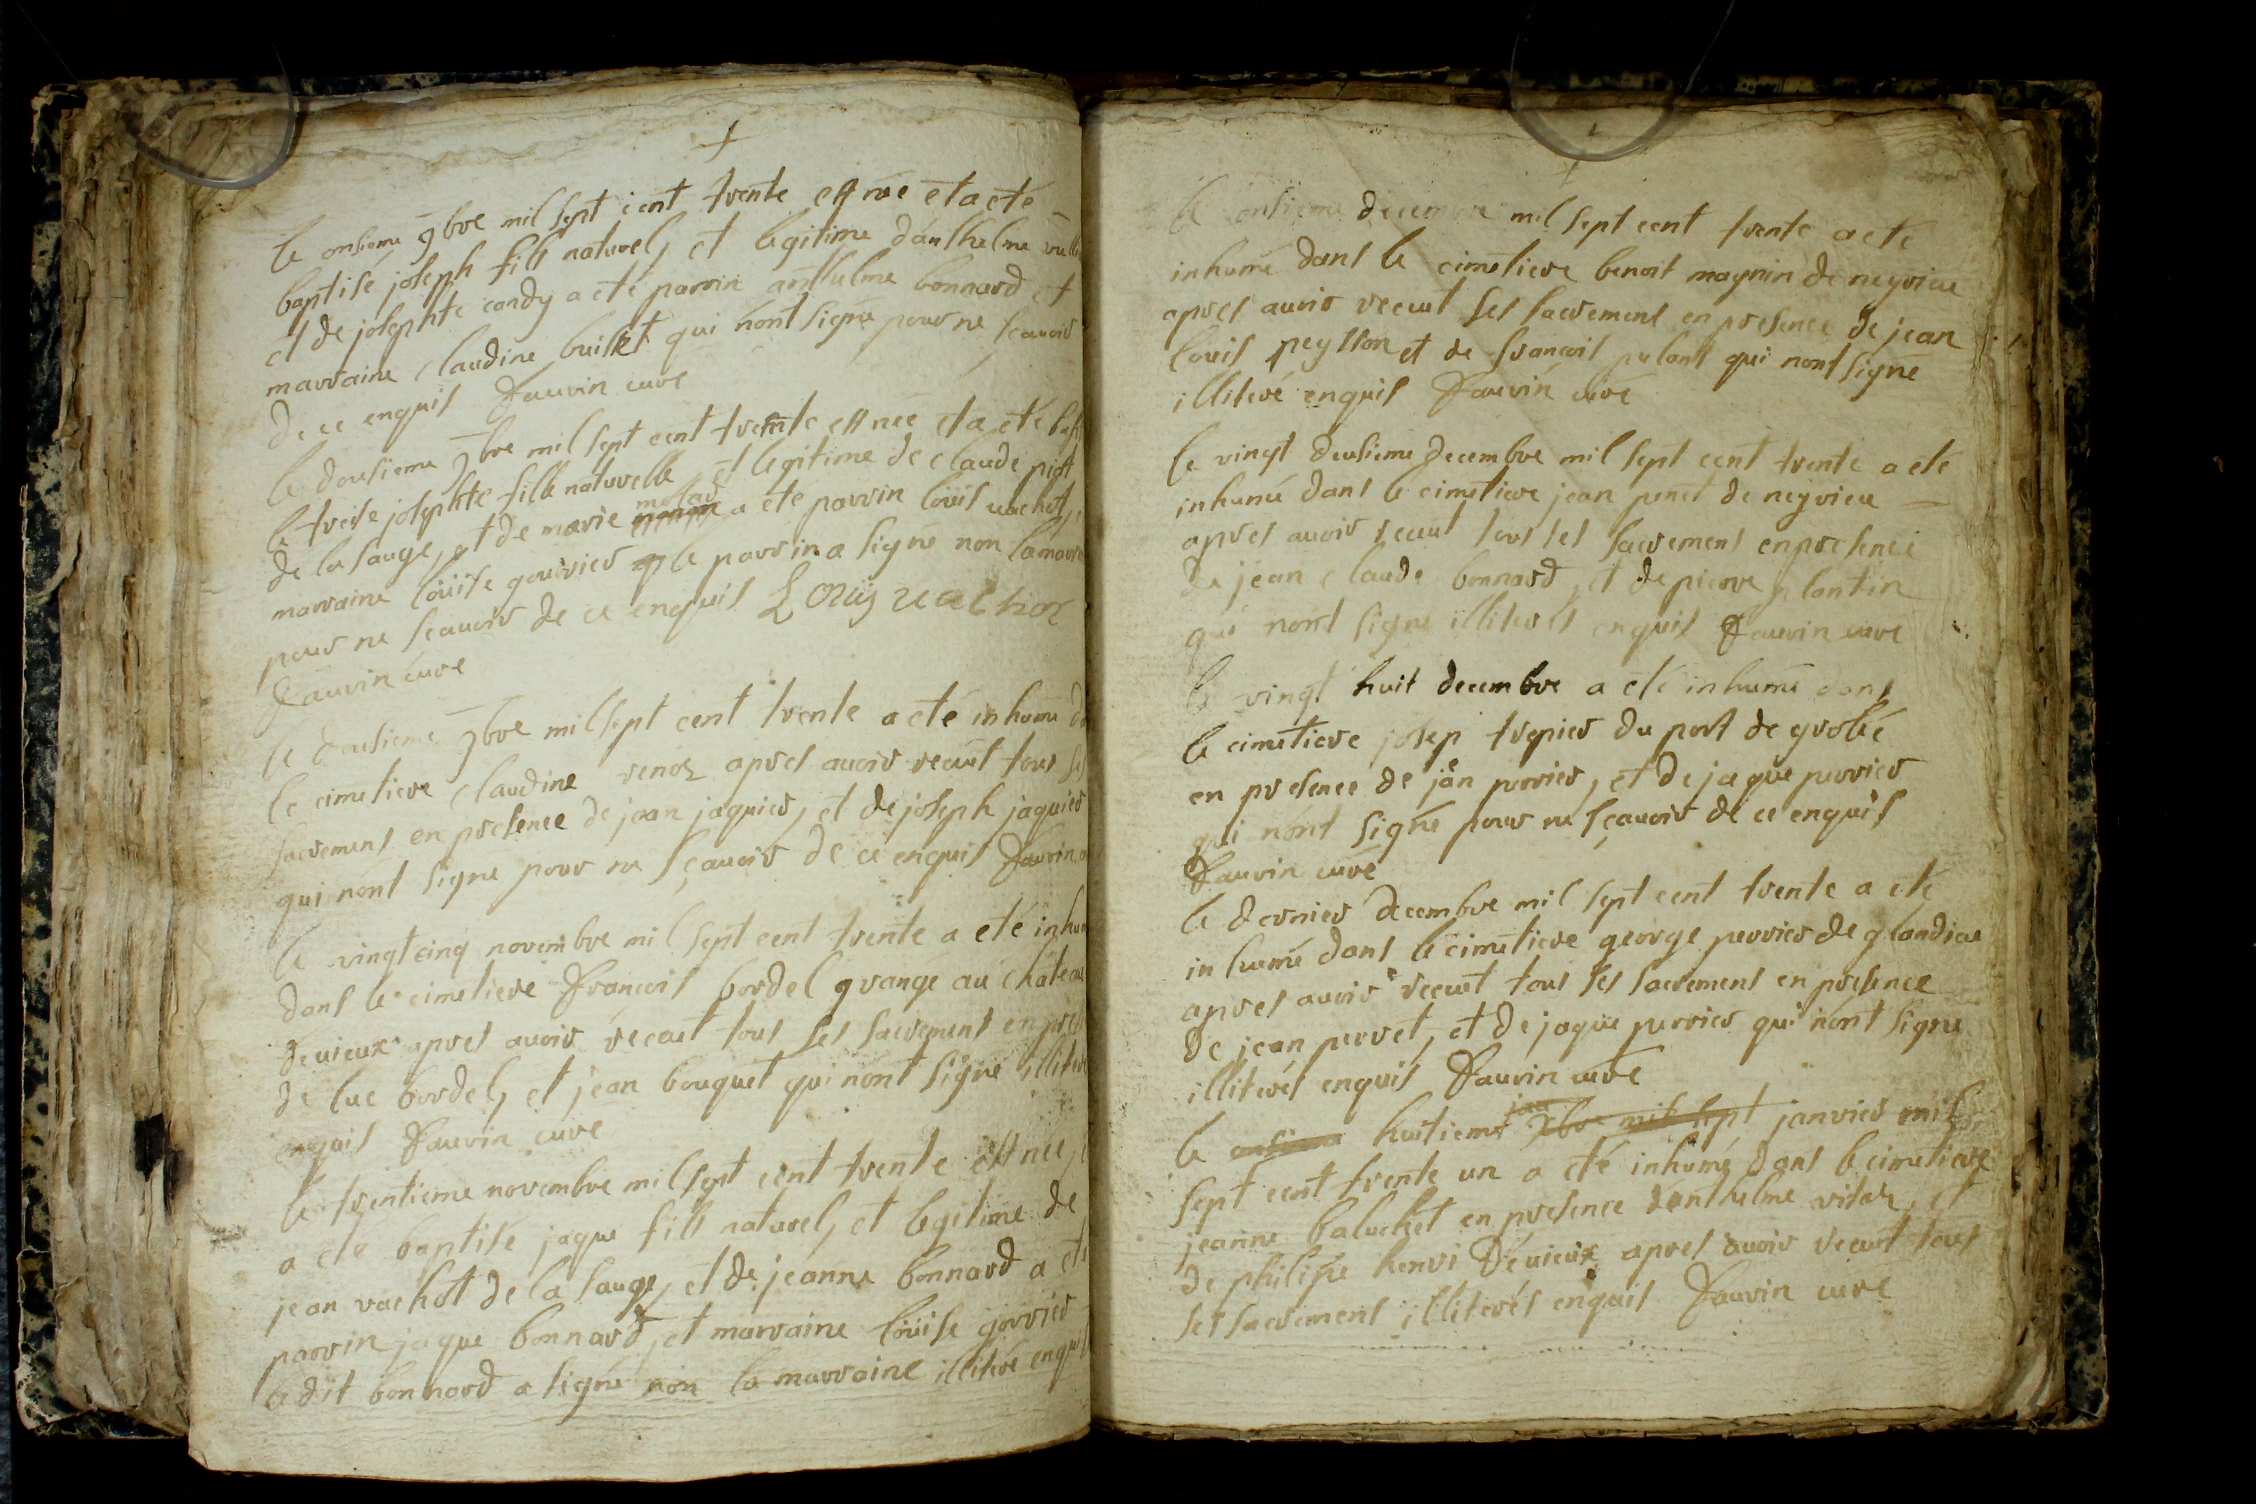 le onsieme 9bre mil sept cent trente est née et a eté
baptisé joseph fils naturel, et legitime d'anthelme
et de josephte candy a eté parrin anthelme bonnard et
marraine claudine buisset qui n'ont signé pour ne sçavoir
de ce enquis Fauvin curé
le dousieme 9bre mil sept cent trente est née et a eté bap
le treise josephte fille naturelle, et legitime de claude piot
de la sauge, et de marie molar a eté parrin loüis vachot,
marraine loüise gourrier le parrin a signé non la marre
pour ne sçavoir de ce enquis Louis vachot
Fauvin curé
le dousieme 9bre mil sept cent trente a eté inhumé da
le cimetiere claudine renos apres avoir recuut tous ses
sacremens en presence de jean jaquier, et de joseph jaquier
qui n'ont signe pour ne sçavoir de ce enquis Fauvin
le vingtcinq novembre mil sept cent trente a eté inhum
dans le cimetiere François bordel grangé au château
de vieux apres avoir recuut tous ses sacrement en pres
de luc bordel, et jean bouquet qui n'ont signé illiter
enquis Fauvin curé
le trentieme novembre mil sept cent trente est née,
a eté baptisé jaque fils naturel, et legitime de
jean vachot de la sauge, et de jeanne bonnard a eté
parrin jaque bonnard, et marraine loüise gourrier
le dit bonnard a signé non la marraine illiteré enquis
le onsieme decembre mil sept cent trente a eté
inhumé dans le cimetiere benoit maynin de neyrieu
apres avoir recuut ses sacrement en presence de jean
louis peysson et de françois pelant qui n'ont signe
illiteré enquis Fauvin curé
le vingt deusieme decembre mil sept cent trente a eté
inhumé dans le cimetiere jean penet de neyrieu
apres avoir recuut tous ses sacrement en presence
de jean claude bonnard, et de pierre plantin
qui n'ont signe illiterés enquis Fauvin curé
le vingt huit decembre a eté inhumé dans
le cimetiere josep trepier du port de groslé
en presence de jean perrier, et de jaque perrier
qui n'ont signé pour ne sçavoir de ce enquis
Fauvin curé
le dernier decembre mil sept cent trente a eté
inhumé dans le cimetiere george perrier de glandieu
apres avoir recuut tous ses sacrement en presence
de jean perret, et de jaque perrier qui n'ont signe
illiterés enquis Fauvin curé
le huitieme 9bre mil sept janvier mil
sept cent trente un a eté inhumé dans le cimetiere
jeanne balochet en presence d'anthelme vitoz, et
de philipe henri de vieux apres avoir recuut tous
ses sacrement illiterés enquis Fauvin curé